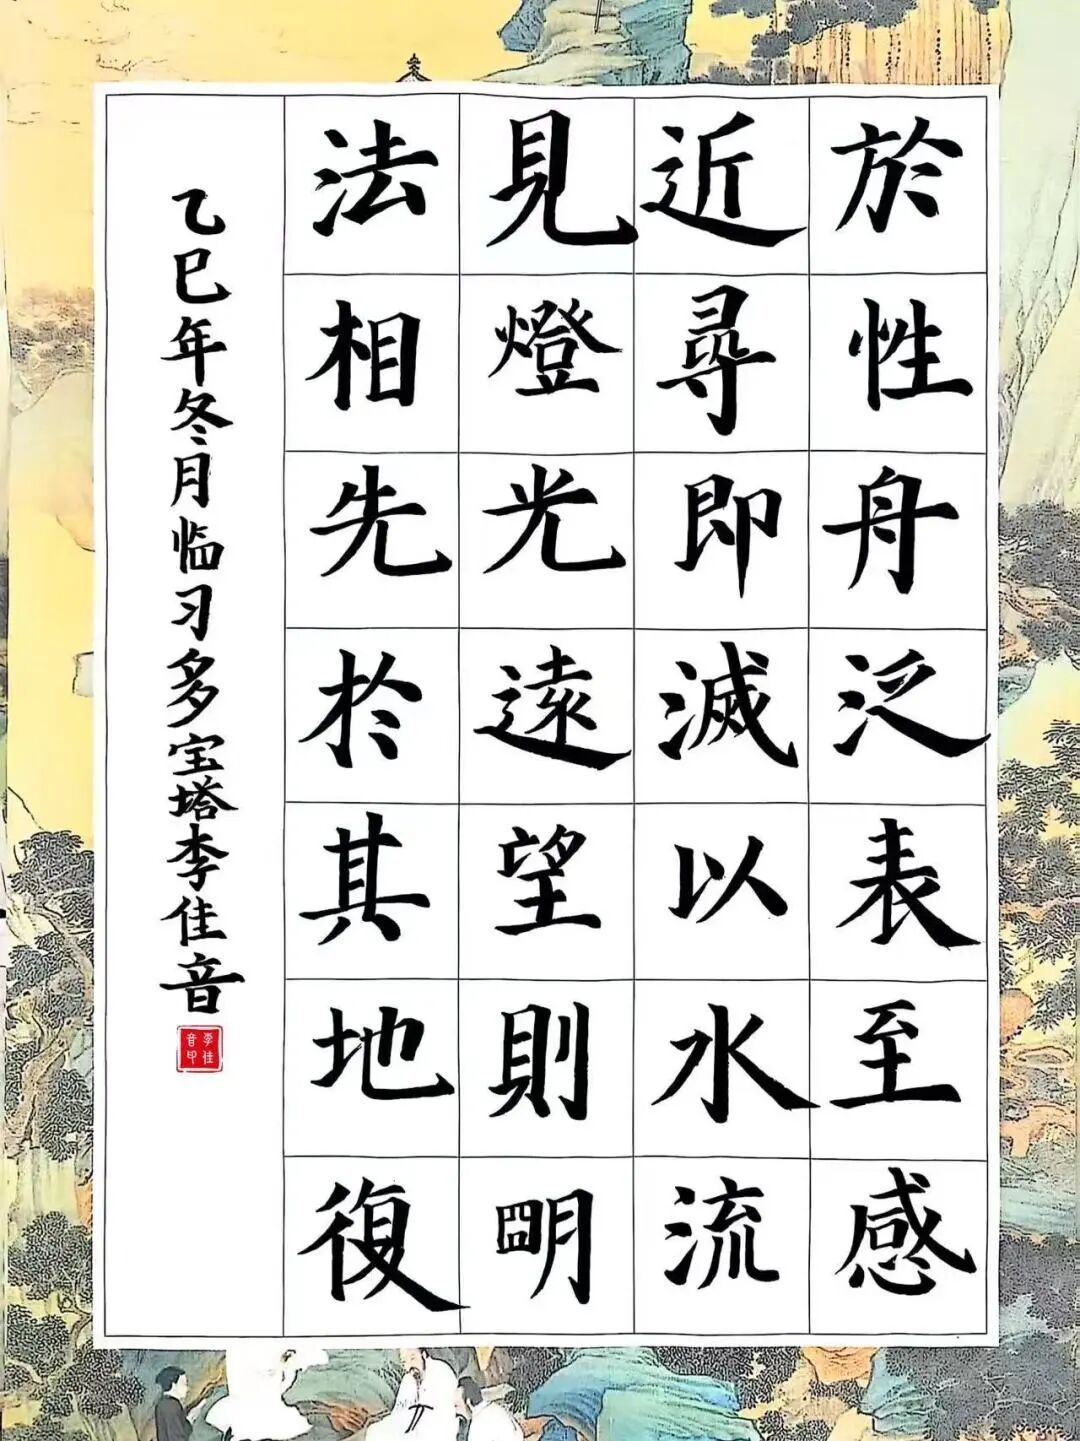 於性舟泛表至感
近尋即滅以水流
見燈光遠望則明
法相先於其地復
乙巳年冬月临习多宝塔李佳音
李佳音印